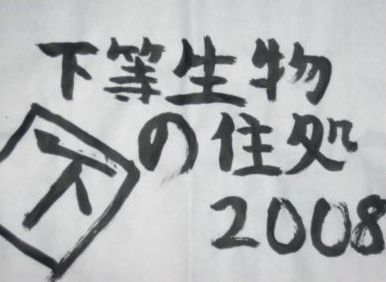 下等生物
の住処
下
2008